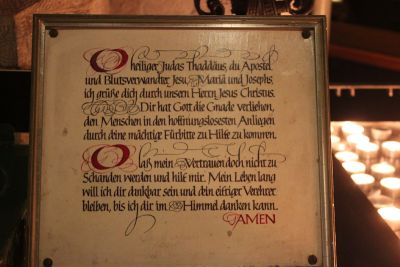 O
heiliger Judas Thaddäus, du Apostel
und Blutsverwandter Jesu, Mariä und Josephs,
ich grüße dich durch unsern Herrn Jesus Christus.
Dir hat Gott die Gnade verliehen,
den Menschen in den hoffnungslosesten Anliegen
durch deine mächtige Fürbitte zu Hilfe zu kommen.
O
laß mein Vertrauen doch nicht zu
Schanden werden und hilf mir. Mein Leben lang
will ich dir dankbar sein und dein eifriger Verehrer
bleiben, bis ich dir im Himmel danken kann.
AMEN